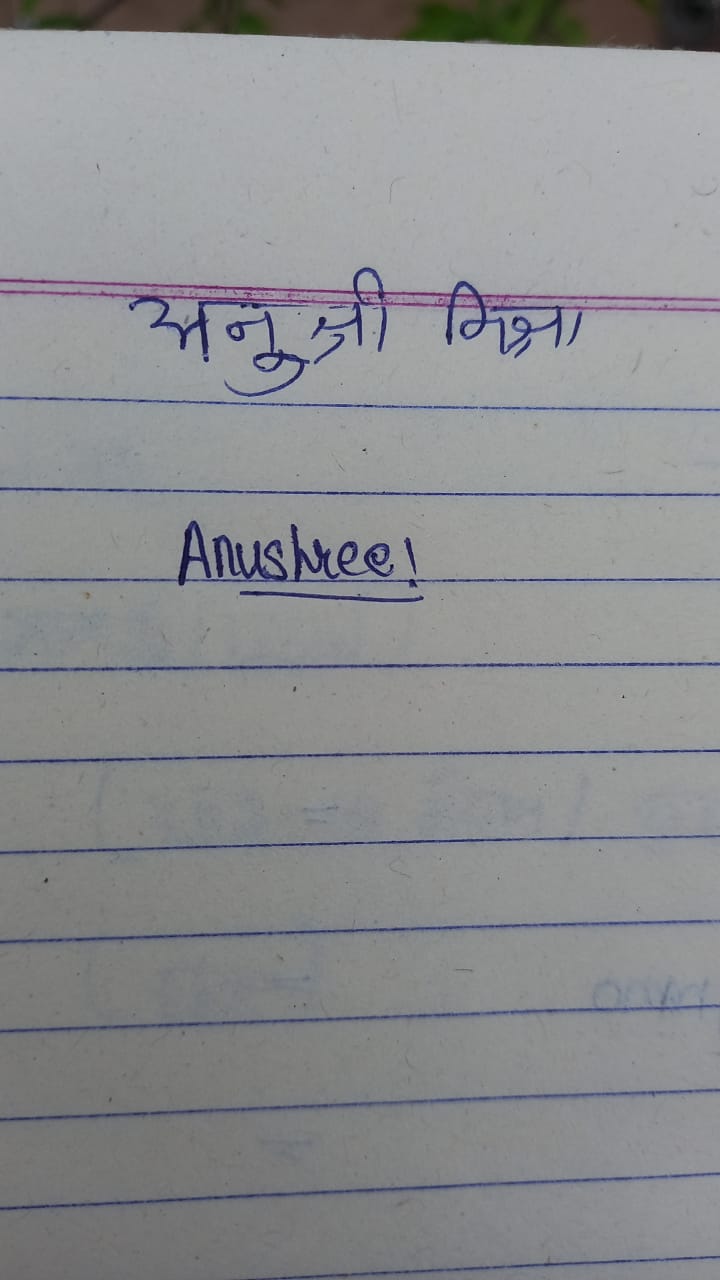 अनुश्री मिश्रा
Anushree!